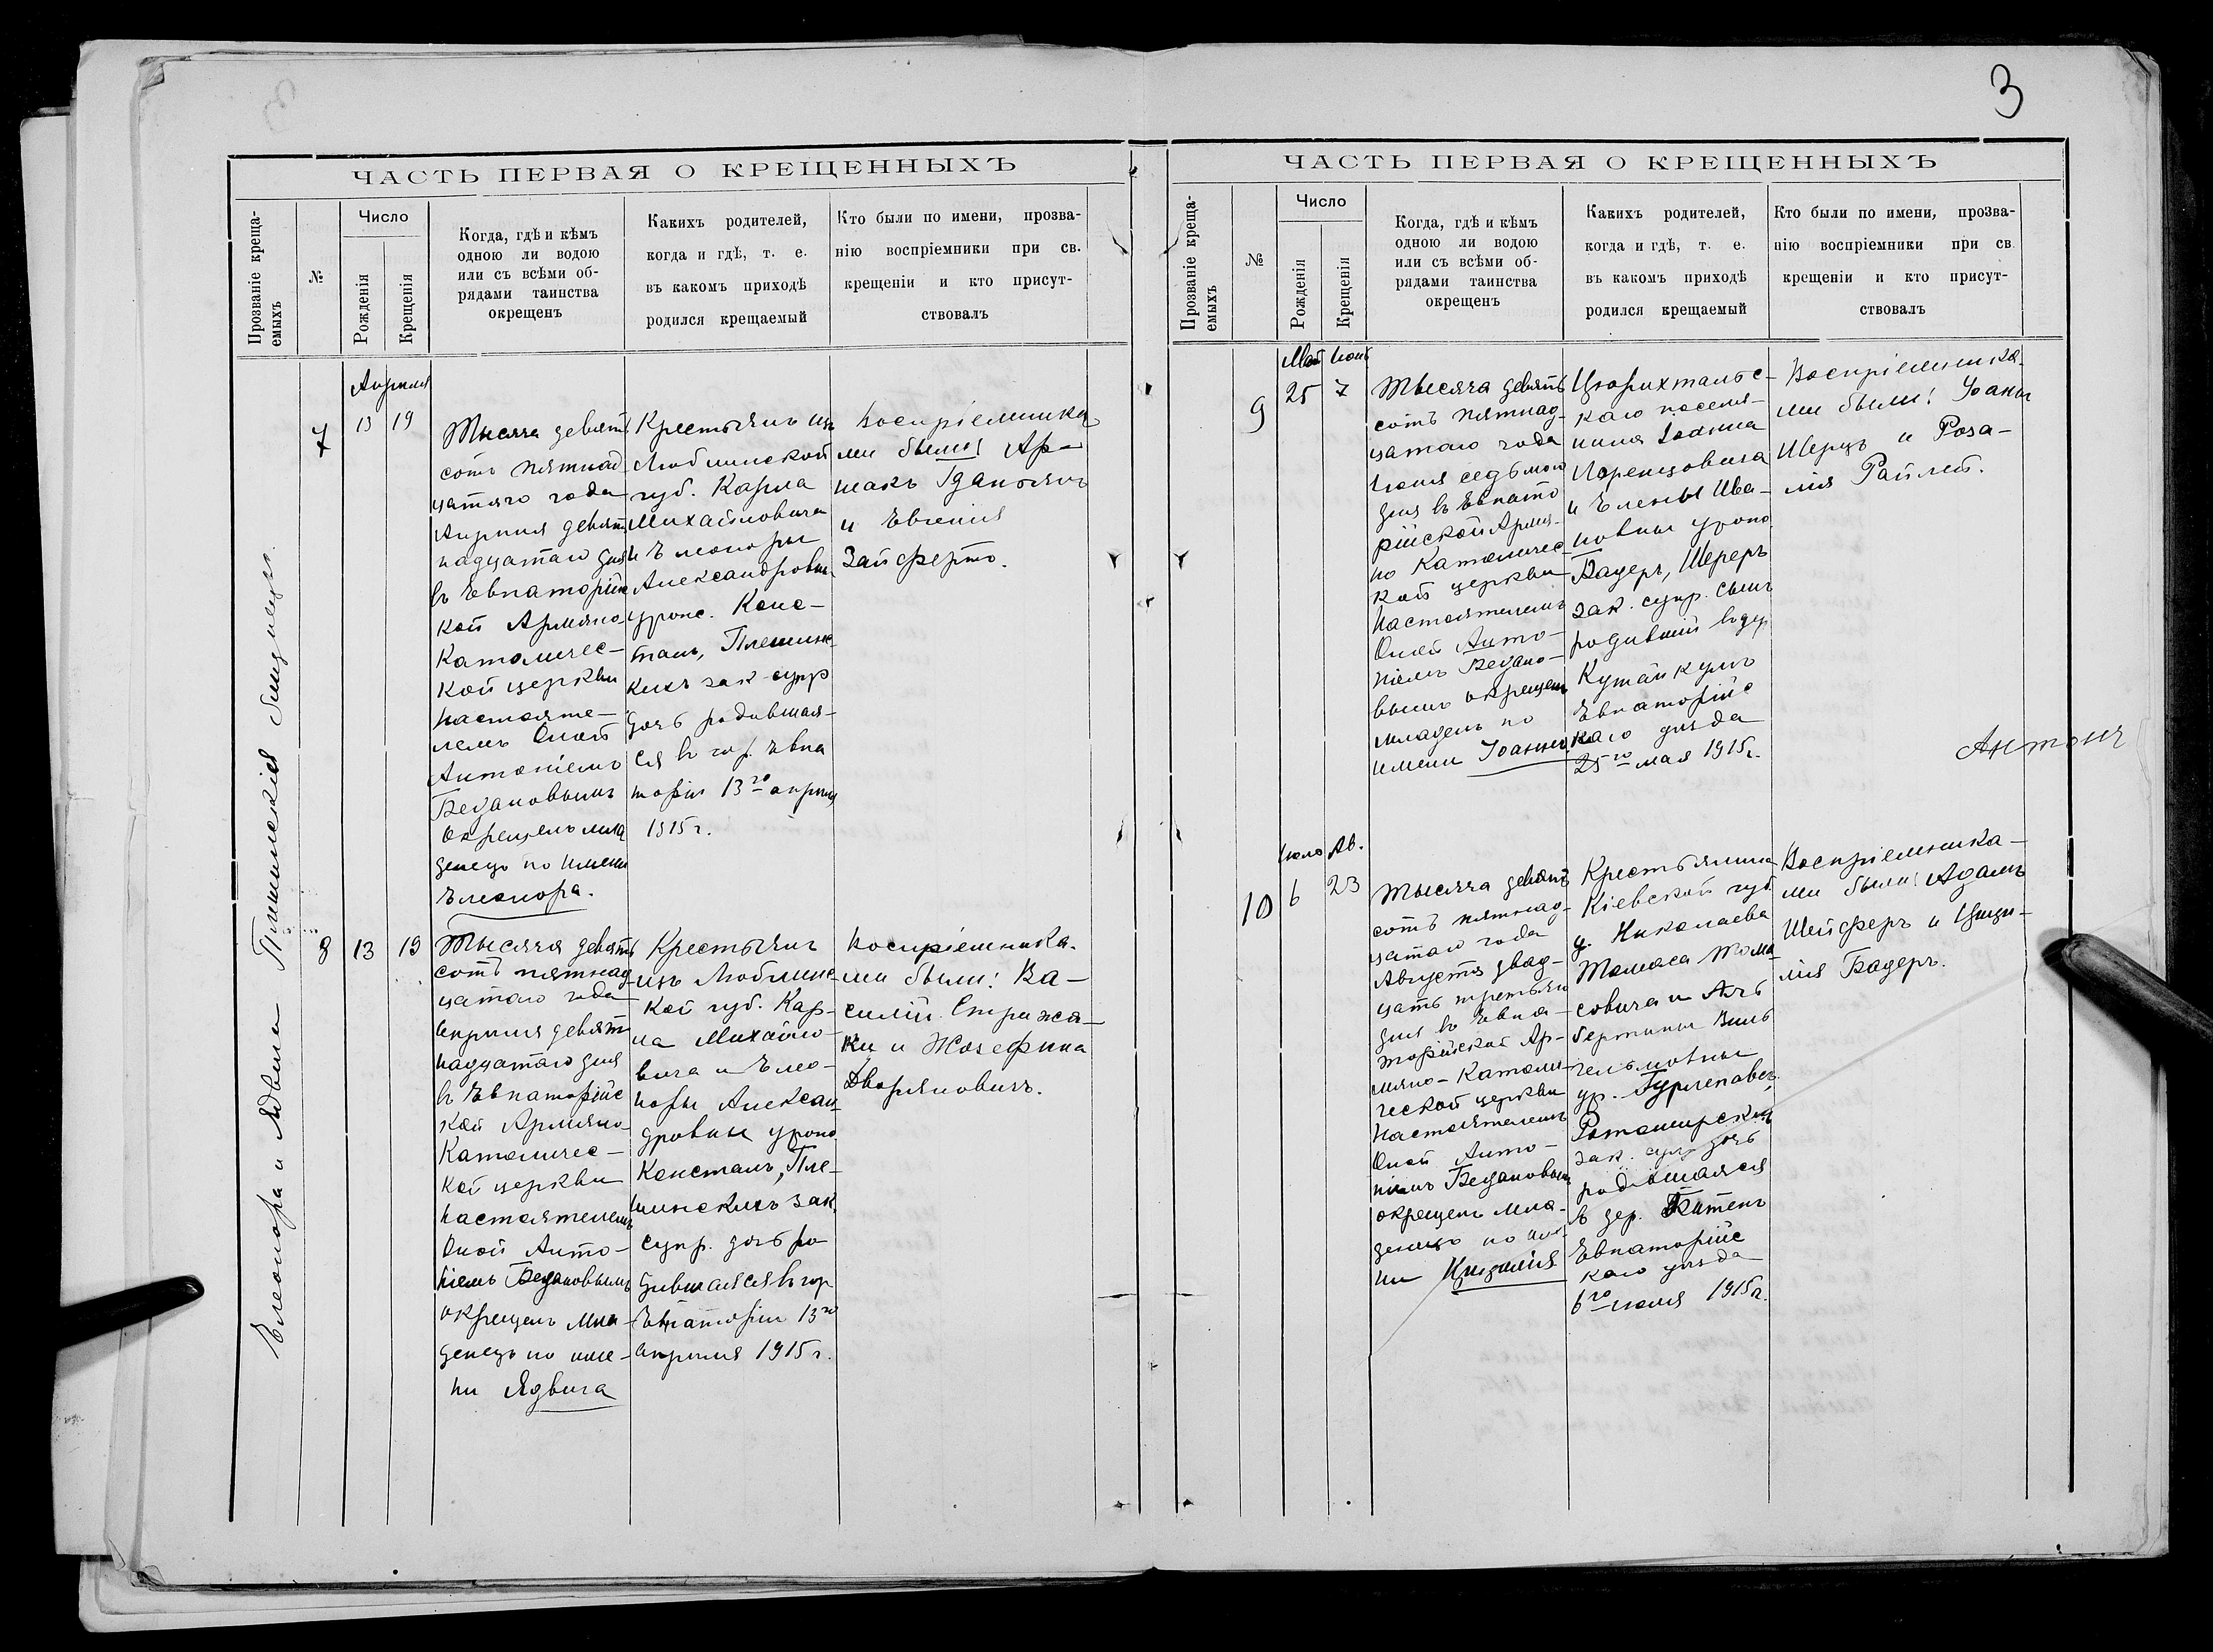 3
ЧАСТЬ ПЕРВАЯ О КРЕЩЕННЫХЪ
Прозваніе креща-
емыхъ
№
Число
Рожденія
Крещенія
Когда, гдѣ и кѣмъ
одною ли водою
или съ всѣми об-
рядами таинства
окрещенъ
Каких­ъ родителей,
когда и гдѣ, т. е.
въ какомъ приходѣ
родился крещаемый
Кто были по имени, прозва-
нію воспріемники при св.
крещеніи и кто присут-
ствовалъ
Элеонора и Ядвига близнецы.
Апрѣля
7
13 19
Тысяча девять
сотъ пятнад
цатаго года
Апрѣля девят
надцатаго дня
въ Евпаторійс
кой Армяно
Католичес-
кой церкви
настояте-
лемъ Оной
Антоніемъ
Безановымъ
окрещенъ мла
денецъ по имени
Элеонора.
Крестьянъ изъ
Люблинской
губ. Карла
Михайловича
и Элеоноры
Александровны
урож. Конс-
танъ,
кихъ зак. супр
дочь родившая-
ся въ гор. Евпа
торіи 13го апрѣля
1915 г.
Воспріемника
ми были: Ар-
шакъ Гданьянъ
и Евгенія
Зайфертъ.
8 13 19
Тысяча девять
сотъ пятнад
цатаго года
Апрѣля девят
надцатаго дня
въ Евпаторійс
кой Армяно
Католичес-
кой церкви
настоятелемъ
Оной Анто-
ніемъ Безановымъ
окрещенъ мла-
денецъ по име-
ни Ядвига
Крестьянъ
изъ Люблинс
кой губ. Кар-
ла Михайло-
вича и Элео-
норы Алексан
дровны урож
Констанъ,
зак.
супр. дочь ро
дившаяся въ гор
Евпаторіи 13го
апрѣля 1915 г.
Воспріемника-
ми были: Ва-
силій
и Жозефина
Дворяновичъ.
ЧАСТЬ ПЕРВАЯ О КРЕЩЕННЫХЪ
Прозваніе креща-
емыхъ
№
Число
Рожденія
Крещенія
Когда, гдѣ и кѣмъ
одною ли водою
или съ всѣми об-
рядами таинства
окрещенъ
Какихъ родителей,
когда и гдѣ, т. е.
въ какомъ приходѣ
родился крещаемый
Кто были по имени, прозва-
нію воспріемники при св.
крещеніи и кто присут-
ствовалъ
Май Іюнь
9
25 7
Тысяча девять
сотъ пятнад-
цатаго года
Іюня седьмого
дня въ Евпато
рійской Армя-
но Католичес-
кой церкви
настоятелемъ
Оной Анто-
ніемъ Безано-
вымъ окрещенъ
младен. по
имени Іоаннъ
Цюрихтальс-
каго поселя-
нина Іоанна
Лоренцовича
и Елены Ива-
новны урож
Бадеръ, Шереръ
зак. супр. сынъ
родивший въ дер
Кутайкулъ
Евпаторійс
каго уѣзда
25го мая 1915 г.
Воспріемника-
ми были: Іоаннъ
Шерцъ и Роза-
лія Райлей.
Антонъ
Іюль Ав.
10 6 23
Тысяча девять
сотъ пятнад-
цатаго года
Августа двад-
цать третьяго
дня въ Евпа-
торійской Ар-
мяно-Католи
ческой церкви
настоятелемъ
Оной Анто-
ніемъ Безановымъ
окрещенъ мла-
денецъ по име
ни Цицилія
Крестьянина
Кіевской губ.
д. Николаева
Томаса Тома
совича и Аль
бертины Виль
гельмовны
ур.
зак. супр дочь
родившаяся
въ дер. Битенъ
Евпаторійс
каго уѣзда
6го іюля 1915 г.
Воспріемника-
ми были: Адамъ
Шейферъ и Цици-
лія Бадеръ.